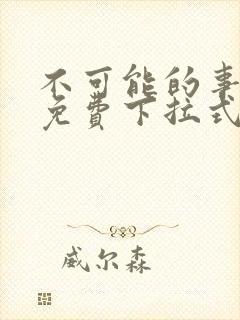 不可能的事
免费下拉式
威尔森